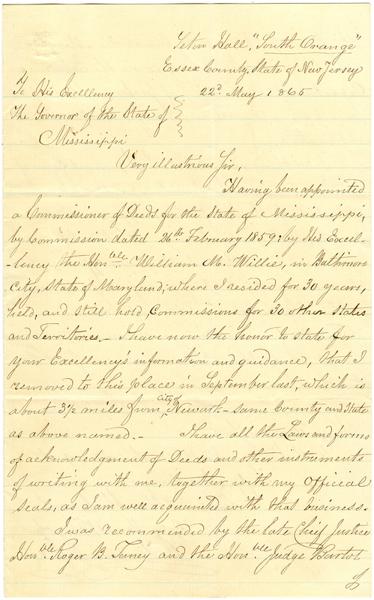 Seton Hall, "South Orange"
Essex County, State of New Jersey
22d. May, 1865
To His Excellency
The Governor of the State of
Mississippi
Very illustrious Sir,
Having been appointed
a Commissioner of Deeds for the State of Mississippi,
by Commission dated 26th February 1859: by His Excel-
-lency the Honble William M. Willie, in Baltimore
City, State of Maryland, where I resided for 30 years,
held, and still hold Commissions for 30 other States
and Territories_ I have now the honor to state for
your Excellency's information and guidance, that I
removed to this place in September last, which is
about 3½ miles from city of Newark - same County and State
as above named._ I have all the Laws and forms
of acknowledgment of Deeds and other instruments
of writing with me, together with my Official
Seals, as I am well acquainted with that business.
I was recommended by the late Chief Justice
Honble Roger B. Taney and the Honble Judge Bartol